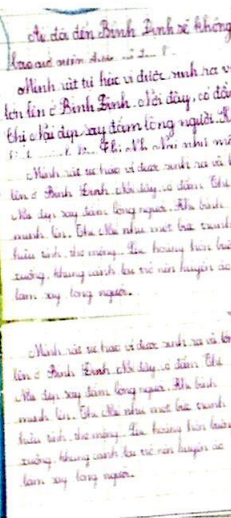 Ai đã đến Bình Định sẽ không
bao giờ quên được
Mình rất tự hào vì được sinh ra và
lớn lên ở Bình Định. Nơi đây có đầm
Thị Nại đẹp say đắm lòng người. K
Thị Nại như một
Mình rất tự hào vì được sinh ra và l
lên ở Bình Định. Nơi đây có đầm Thị
Nại đẹp say đắm lòng người. Khi bình
minh lên, Thị Nại như một bức tranh
hữu tình, thơ mộng. hoàng hôn buông
xuống, khung cảnh lại trở nên huyền ảo
làm say lòng người.
Mình rất tự hào vì được sinh ra và lớn
lên ở Bình Định. Nơi đây có đầm Thị
Nại đẹp say đắm lòng người. Khi bình
minh lên, Thị Nại như một bức tranh
hữu tình, thơ mộng. hoàng hôn buông
xuống, khung cảnh lại trở nên huyền ảo
làm say lòng người.